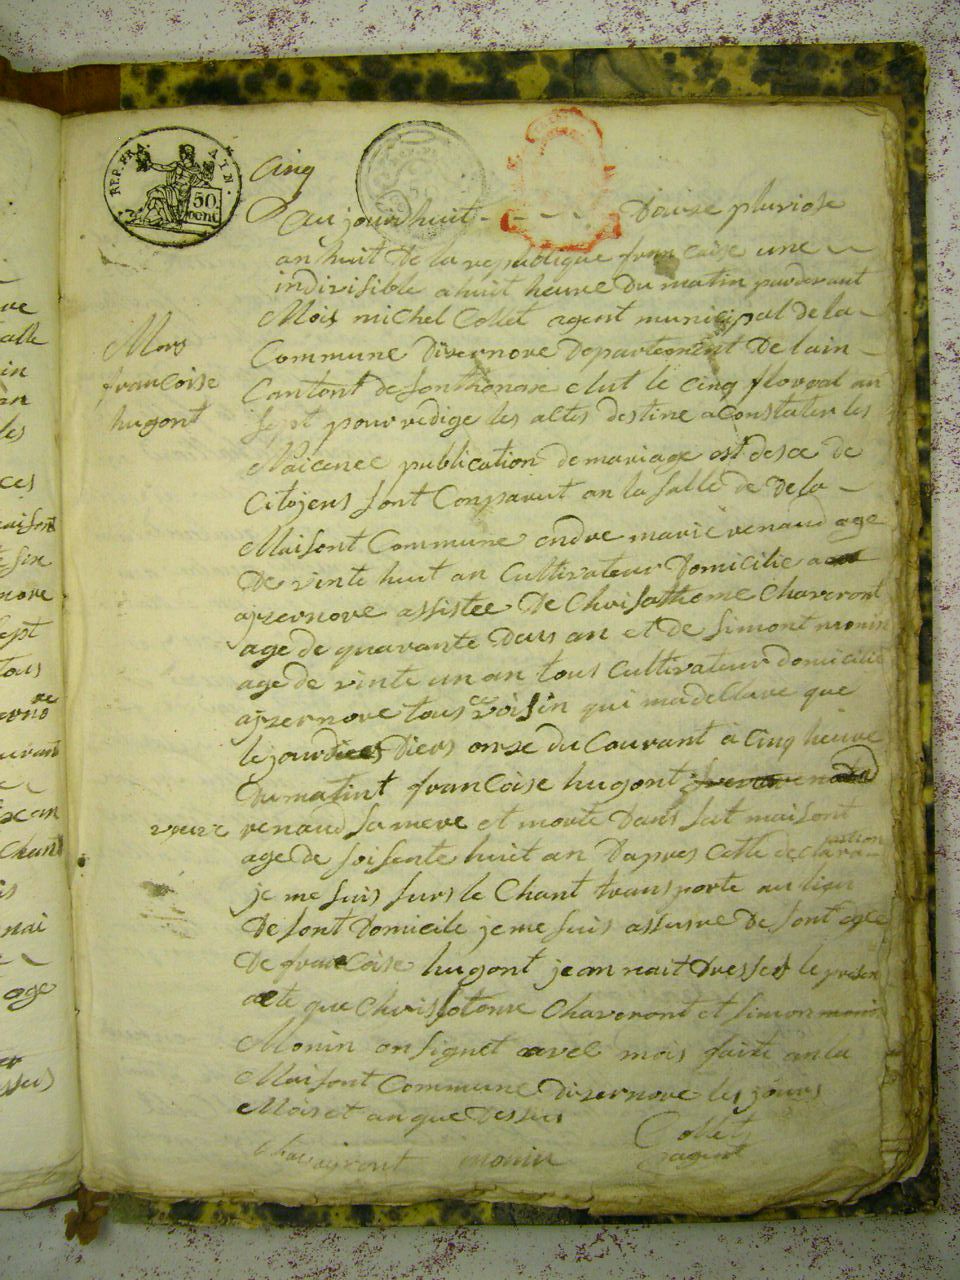 REP. FRA. ATN.
50 cent
cinq
Aujourdhuit - - - - Douse pluviose
an huit De la republique francaise une
indivisible a huit heure Du matin pardevant
Mois michel Collet agent municipal de la
Commune Disernore Departement De lain
Cantont de Sonthonase elut le cinq floreal an
Sept pour redige les actes destine a Constater les
Naicence publication de mariage est desce de
Citoyens sont Conparut an la Salle de De la
Maisont Commune endre marie renaud age
De vinte huit an Cultivateur Domicilie
ajzernore assistee De Chrisathome Chaveront
age de quarante Deus an et de Simont monin
age de vinte un an tous Cultivateur domicilie
ajzernore tous voisin qui ma declare que
le jour Diers onse du Courant a Cinq heure
Du matint francoise hugont
renaud sa mere et morte Dans sat maisont
age De soisente huit an Dapres Cette declaration
je me suis surs le Chant transporte au lieu
De sont Domicile je me suis assusre De sont
De francoise hugont jean nait Dresser le presen
acte que Chrisostome Chaveront et Simon
Monin on signet avec mois faite an la
Maisont Commune Disernore les jours
Mois et an que Dessus
Collet
monin agent
Mors
francoise
hugont